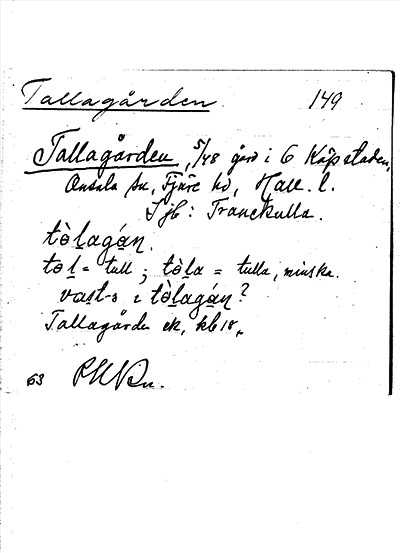 Tallagården 149
Tallagården, 5/48 gård i 6 Köpstaden,
Onsala sn, Fjäre hd, Hall. l.
Jjb: Tranekulla.
tò̱lagá̱ṇ.
to̱l = tull; tò̱la = tulla, minska.
vaṣt-s i tò̱lagá̱ṇ?
Tallagården ek, kb18,.
63